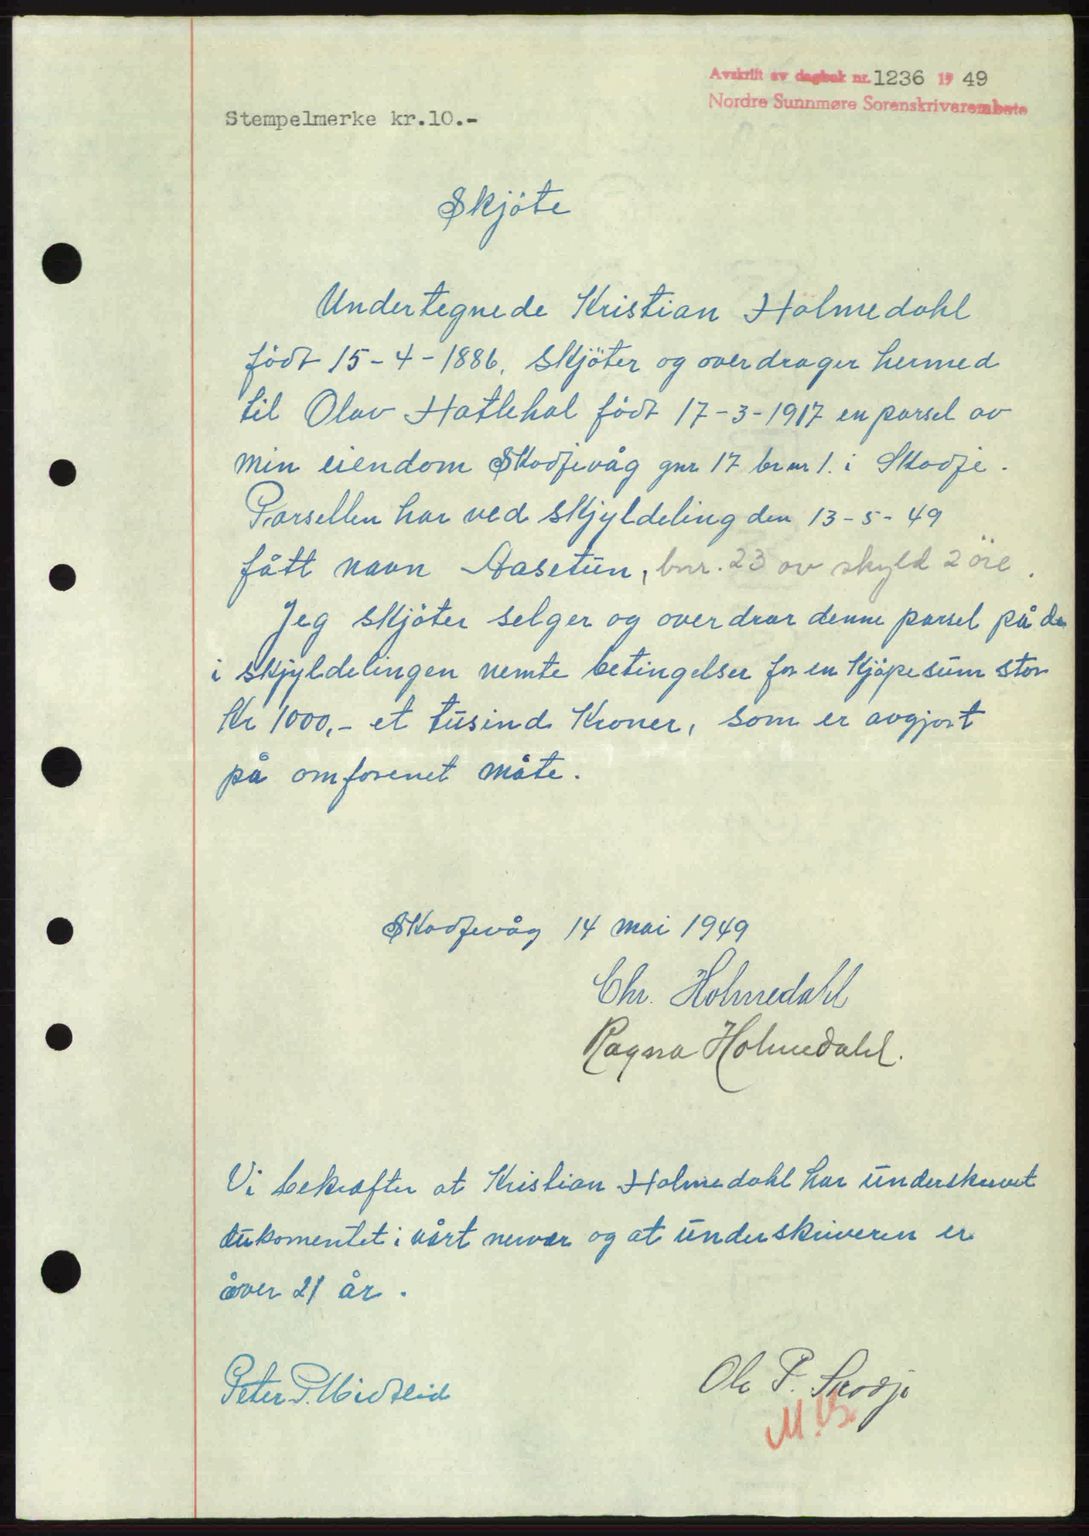 Avskrift av dagbok nr. 1236 19 49
Nordre Sunnmøre Sorenskriverembete
Stempelmerke kr.10.-
Skjöte
Undertegnede Kristian Holmedahl
født 15-4-1886, skjöter og overdrager hermed
til Olav Hatlehol født 17-3-1917 en parsel av
min eiendom Skodjevåg gnr 17 br nr 1. i Skodje.
Parsellen har ved skjyldeling den 13-5-49
fått navn Aasetun, bnr. 23 av skyld 2 öre.
Jeg skjöter selger og overdrar denne parsel på de
i skjyldelingen nemte betingelser for en Kjöpesum stor
Kr 1000,- et tusind Kroner, som er avgjort
på omforenet måte.
Skodjevåg 14 mai 1949
Chr. Holmedahl
Ragna Holmedahl.
Vi bekrefter at Kristian Holmedahl har underskrevet
dukomentet i vårt nervær og at underskriveren er
over 21 år.
Peter P. Midtlid
Ole P. Skodje
M.B.